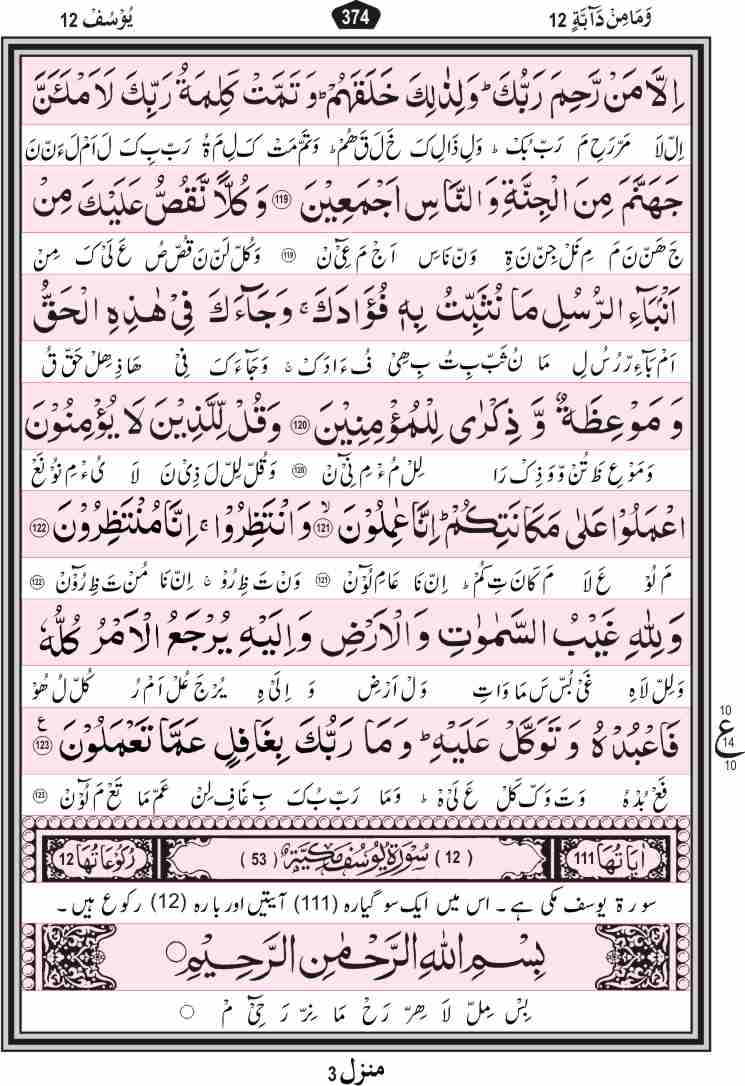 وَمَا مِنْ دَآبَّةٍ 12 374 يُوْسُفْ 12
اِلَّا مَنْ رَّحِمَ رَبُّكَ ؕ وَلِذٰلِكَ خَلَقَهُمْ ؕ وَتَمَّتْ كَلِمَةُ رَبِّكَ لَاَمْلَـَٔنَّ
اِلْ لَا مَرْ رَحِ مَ رَبْ بُكْ ؕ وَلِ ذَالِ كَ خَ لَ قَ هُمْ ؕ وَتَمْ مَتْ كَ لِ مَ ةُ رَبْ بِ كَ لَ اَمْ لَ ءَنْ نَ
جَهَنَّمَ مِنَ الْجِنَّةِ وَالنَّاسِ اَجْمَعِيْنَ ۝119 وَكُلًّا نَّقُصُّ عَلَيْكَ مِنْ
جَ هَنْ نَ مَ مِ نَلْ جِنْ نَ ةِ وَنْ نَاسِ اَجْ مَ عِىْٓ نْ 119 وَكُلْ لَنْ نَ قُصْ صُ عَ لَىْ كَ مِنْ
اَنْۢبَآءِ الرُّسُلِ مَا نُثَبِّتُ بِهٖ فُؤَادَكَ ۚ وَجَآءَكَ فِيْ هٰذِهِ الْحَقُّ
اَمْ بَآءِ رْ رُسُ لِ مَا نُ ثَبْ بِ تُ بِ هِىْ فُ ءَادَكْ ۚ وَجَآءَ كَ فِىْ هَا ذِ هِلْ حَقْ قُ
وَ مَوْعِظَةٌ وَّ ذِكْرٰى لِلْمُؤْمِنِيْنَ ۝120 وَقُلْ لِّلَّذِيْنَ لَا يُؤْمِنُوْنَ
وَ مَوْ عِ ظَ تُنْ وَ وَ ذِ كْ رَا لِلْ مُ ءْ مِ نِىْٓ نْ 120 وَقُلْ لِلْ لَ ذِىْ نَ لَا يُ ءْ مِ نُوْ نَعْ
اعْمَلُوْا عَلٰى مَكَانَتِكُمْ ؕ اِنَّا عٰمِلُوْنَ ۝121ۙ وَانْتَظِرُوْا ۚ اِنَّا مُنْتَظِرُوْنَ ۝122
مَ لُوْ عَ لَا مَ كَانَ تِ كُمْ ؕ اِنْ نَا عَامِ لُوْٓنْ 121 وَنْ تَ ظِ رُوْ ۚ اِنْ نَا مُنْ تَ ظِ رُوْٓنْ 122
وَلِلّٰهِ غَيْبُ السَّمٰوٰتِ وَالْاَرْضِ وَاِلَيْهِ يُرْجَعُ الْاَمْرُ كُلُّهٗ
وَلِلْ لَاهِ غَىْ بُسْ سَ مَا وَاتِ وَلْ اَرْضِ وَ اِلَىْ هِ يُرْجَ عُلْ اَمْ رُ كُلْ لُ هُوْ
فَاعْبُدْهُ وَتَوَكَّلْ عَلَيْهِ ؕ وَمَا رَبُّكَ بِغَافِلٍ عَمَّا تَعْمَلُوْنَ ۝123 ع
فَعْ بُدْهُ وَتَ وَكْ كَلْ عَ لَىْ هْ ؕ وَمَا رَبْ بُ كَ بِ غَافِ لِنْ عَمْ مَا تَعْ مَ لُوْٓنْ 123
10
ع
14
10
اٰيَاتُهَا 111 (12) سُوْرَةُ يُوْسُفَ مَكِّيَّةٌ (53) رُكُوْعَاتُهَا 12
سورۃ یوسف مکی ہے۔ اس میں ایک سو گیارہ (111) آیتیں اور بارہ (12) رکوع ہیں۔
بِسْمِ اللّٰهِ الرَّحْمٰنِ الرَّحِيْمِ ۝
بِسْ مِلْ لَا هِرْ رَحْ مَا نِرْ رَ حِىْٓ مْ ۝
منزل 3